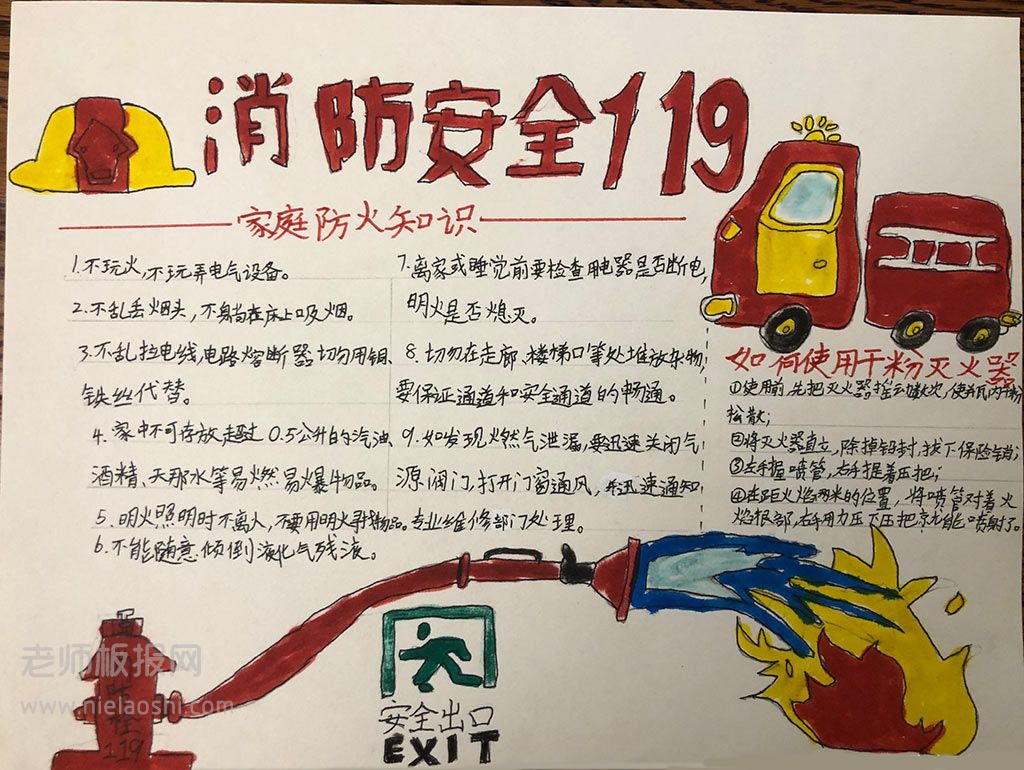 消防安全119
家庭防火知识
1.不玩火,不玩弄电气设备。
2.不乱丢烟头,不躺在床上吸烟。
3.不乱拉电线,电路熔断器切勿用铜、
铁丝代替。
4.家中不可存放超过0.5公升的汽油、
酒精、天那水等易燃易爆物品。
5.明火照明时不离人,不要用明火寻找物品。
6.不能随意倾倒液化气残液。
7.离家或睡觉前要检查用电器是否断电,
明火是否熄灭。
8.切勿在走廊、楼梯口等处堆放杂物,
要保证通道和安全通道的畅通。
9.如发现燃气泄漏,要迅速关闭气
源阀门,打开门窗通风,并迅速通知
专业维修部门处理。
如何使用干粉灭火器
①使用前,先把灭火器摇动数次,使瓶内干粉
松散;
②将灭火器直立,除掉铅封,拔下保险销;
③左手握喷管,右手提着压把;
④在距火焰两米的位置,将喷管对着火
焰根部,右手用力压下压把就能喷射了。
消防栓
119
安全出口
EXIT
老师板报网
www.nielaoshi.com